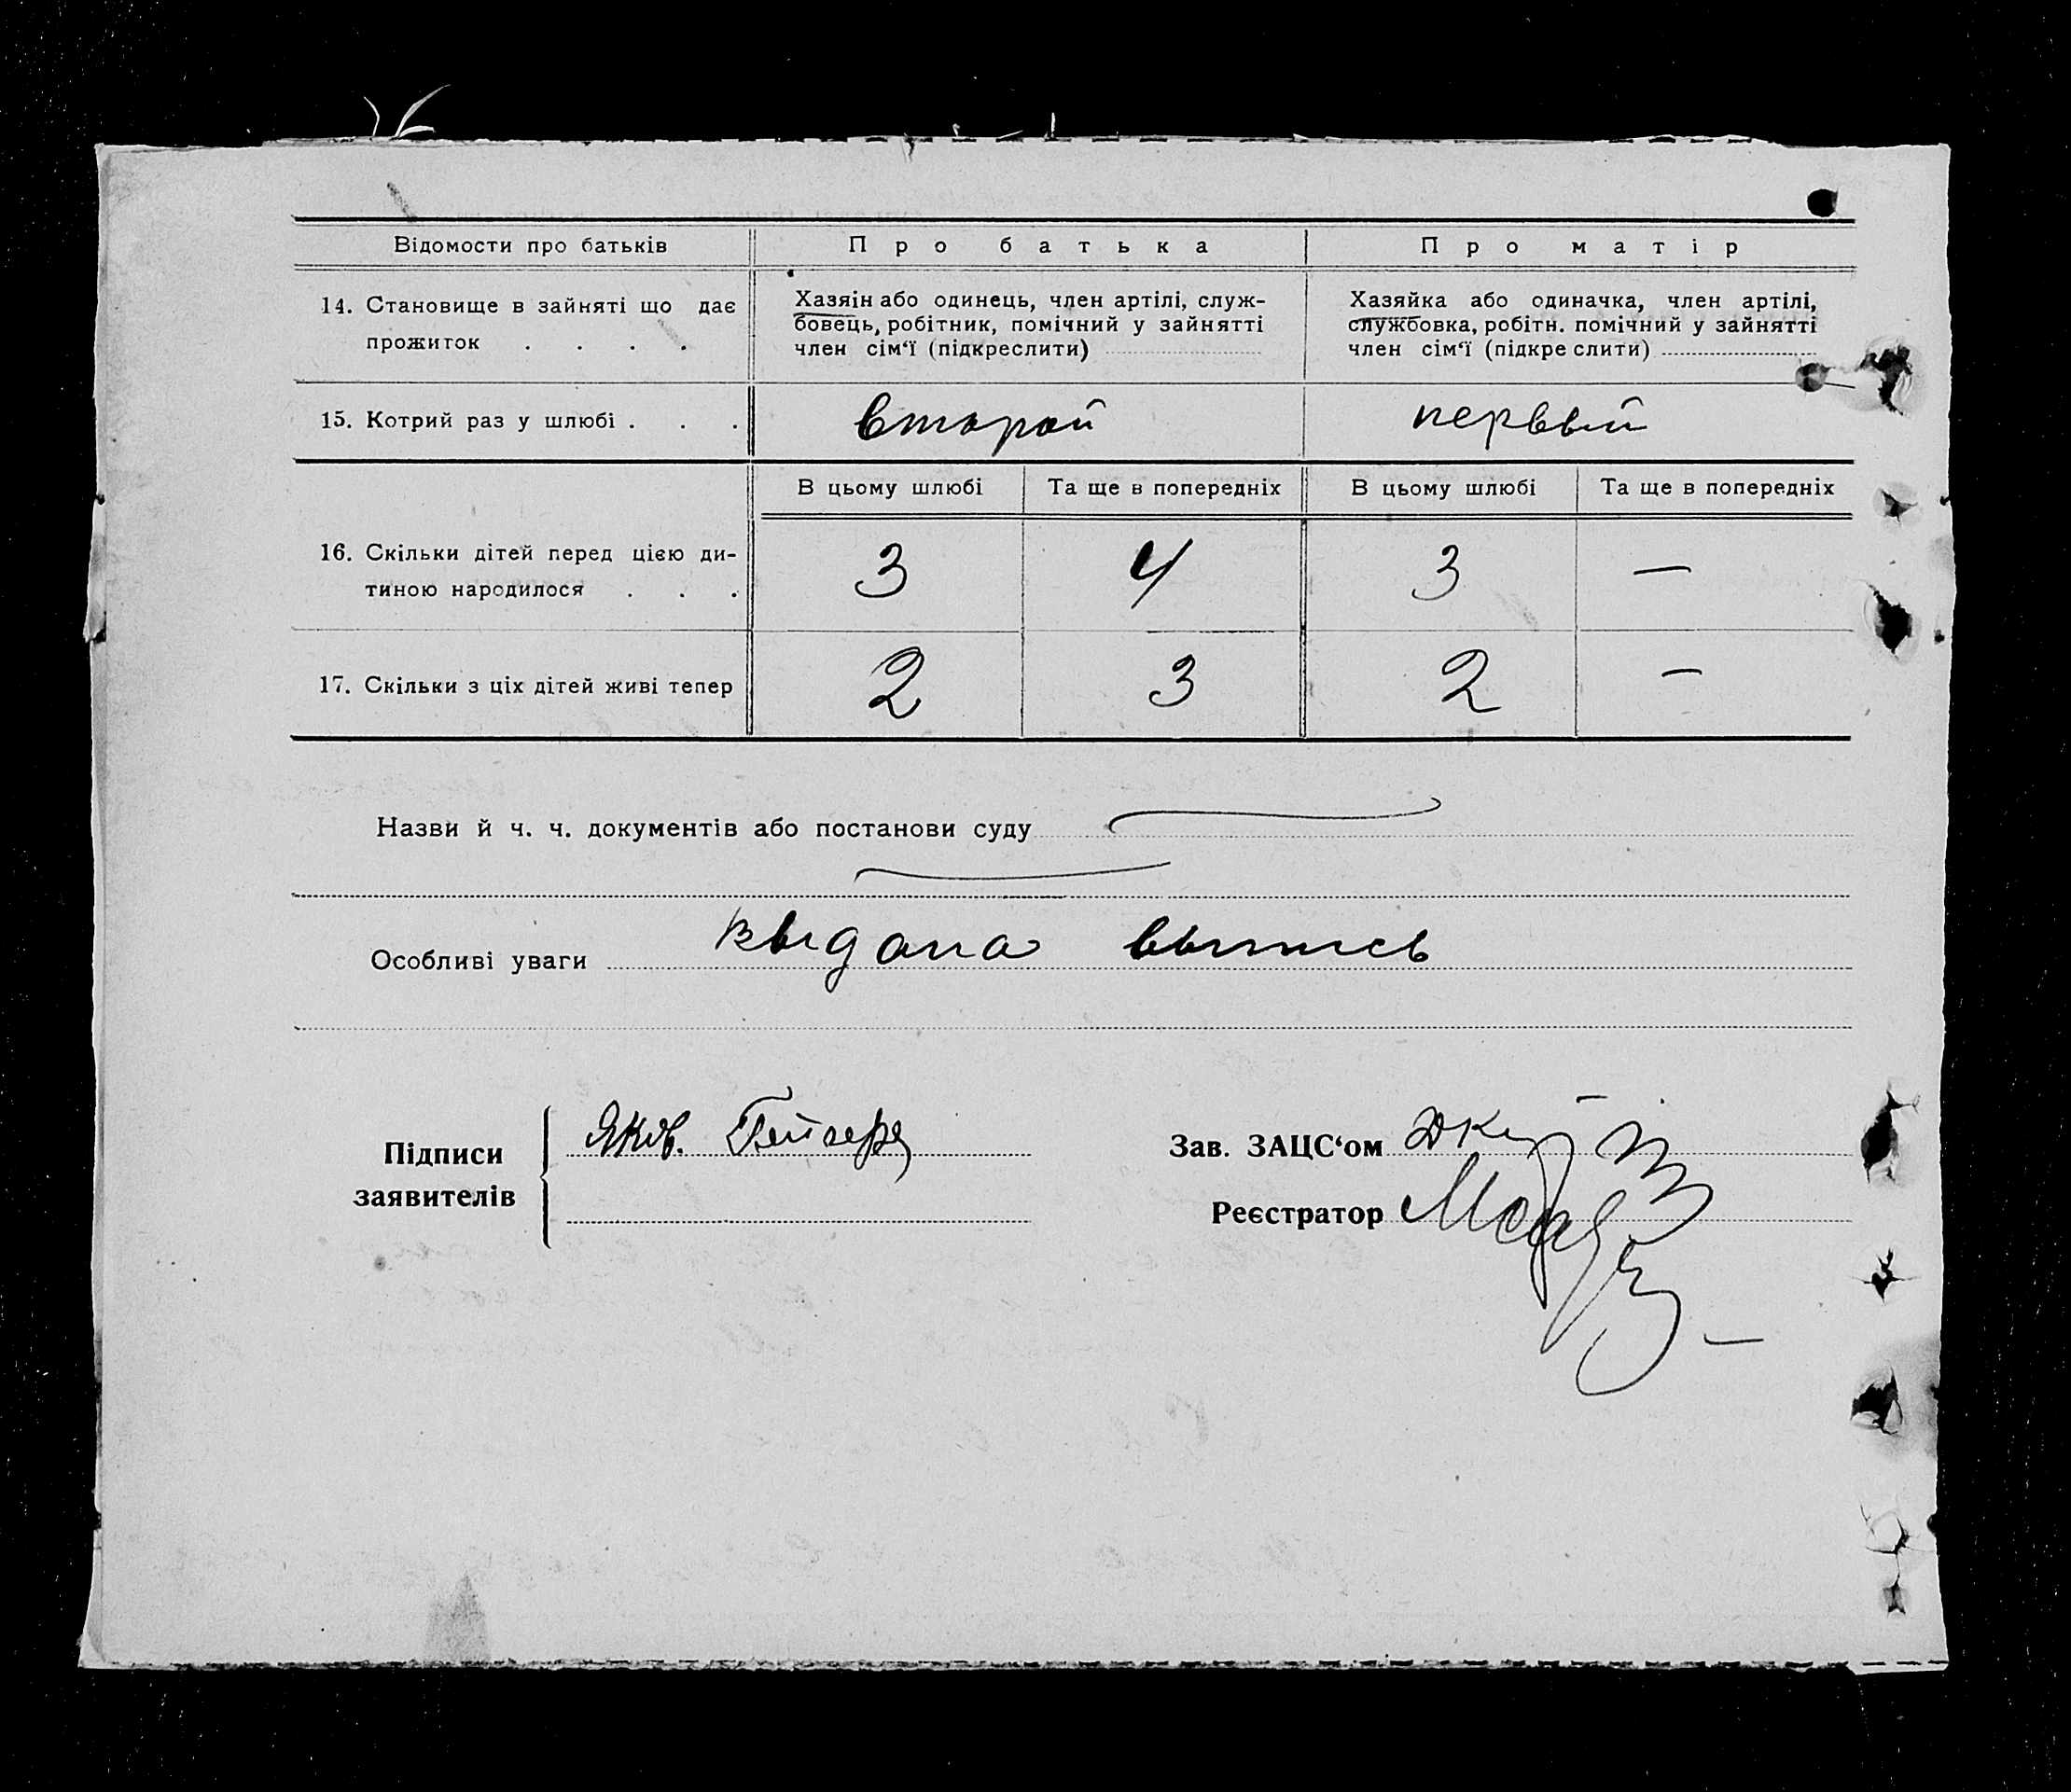 Відомости про батьків Про батька Про матір
14. Становище в зайняті що дає
прожиток . . . .
Хазяін або одинець, член артілі, служ-
бовець, робітник, помічний у зайнятті
член сім‘ї (підкреслити)
Хазяйка або одиначка, член артілі,
службовка, робітн. помічний у зайнятті
член сім‘ї (підкре слити)
15. Котрий раз у шлюбі . . . второй первый
В цьому шлюбі Та ще в попередніх В цьому шлюбі Та ще в попередніх
16. Скільки дітей перед цією ди-
тиною народилося . . .
3 4 3 —
17. Скільки з ціх дітей живі тепер 2 3 2 —
Назви й ч. ч. документів або постанови суду
Особливі уваги Выдана выпись
Підписи
заявителів
Яков. Гейгер
Зав. ЗАЦС‘ом
Реєстратор